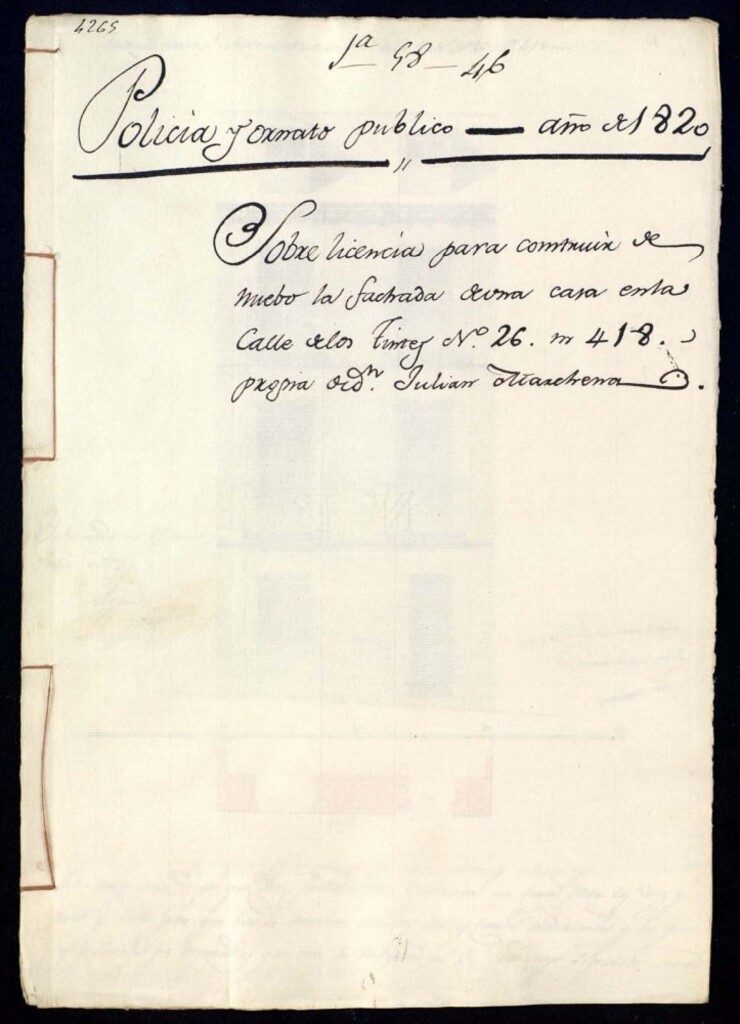 4265
1a - 58 - 46
Policia y ornato publico — año de 1820
Sobre licencia para construir de
nuebo la fachada de una casa en la
Calle de los Tintes Nº. 26. m 418.
propia de dn. Julian Marchena.